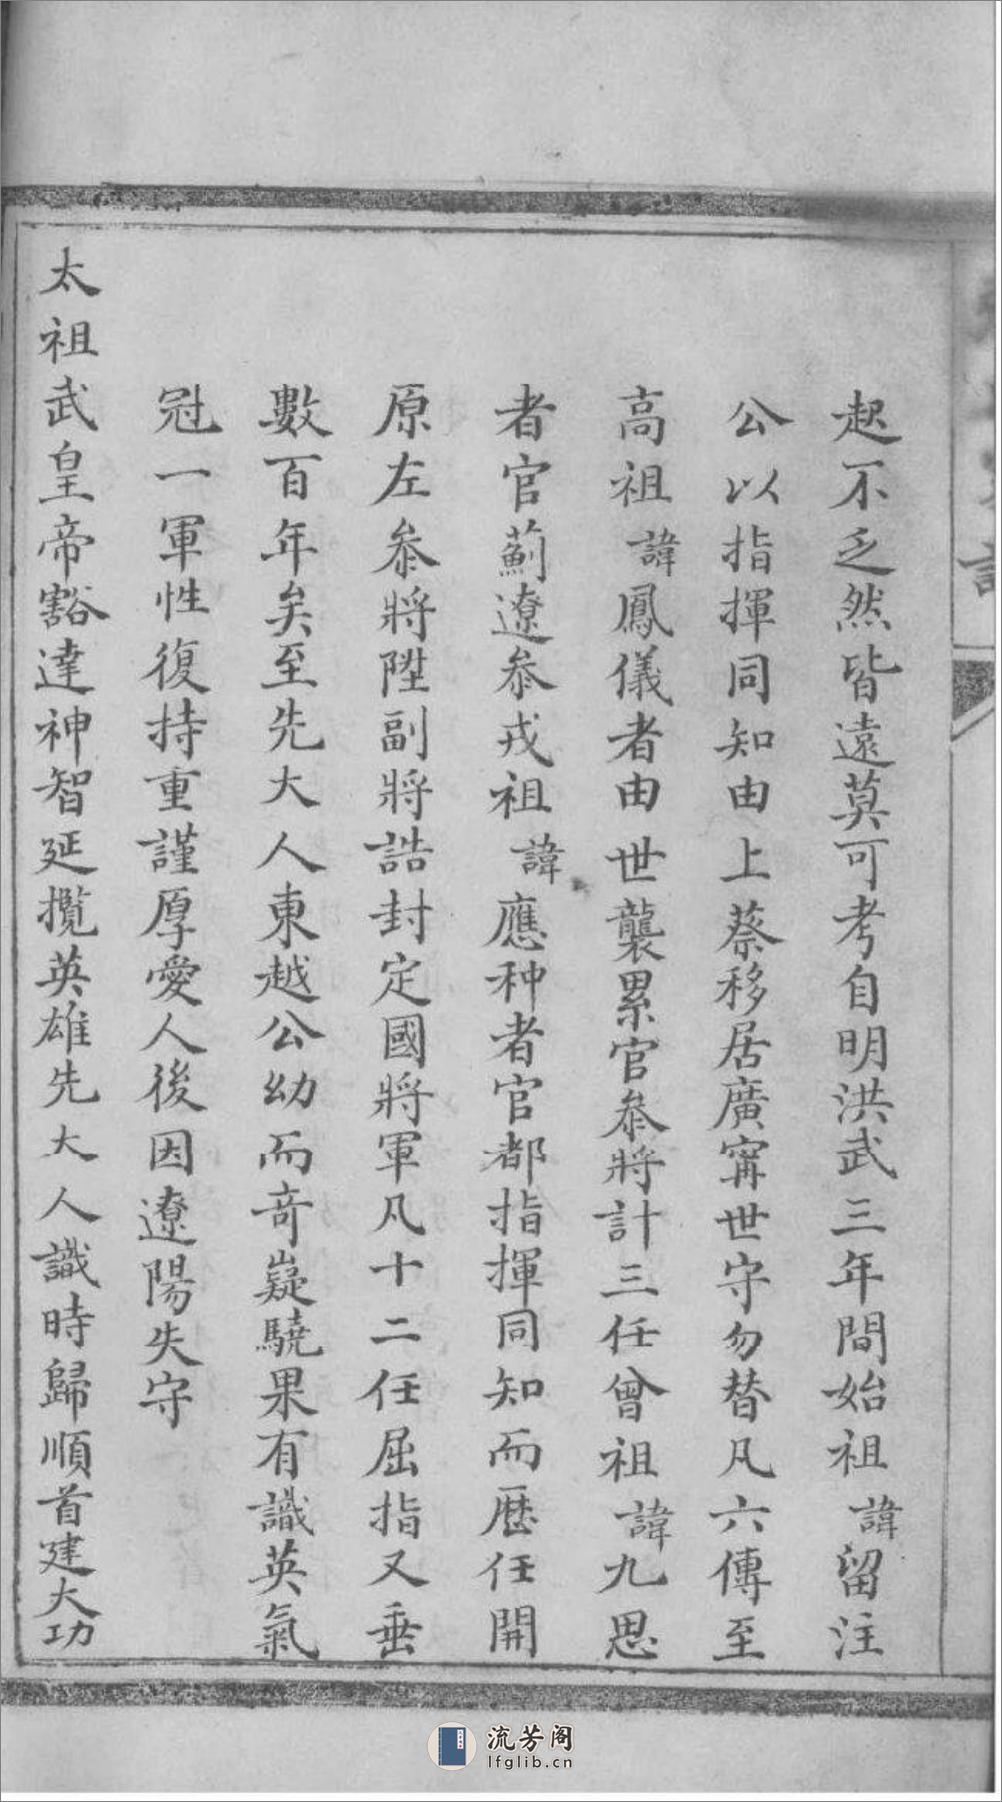 起不乏然皆遠莫可考自明洪武三年間始祖諱留注
公以指揮同知由上蔡移居廣甯世守勿替凡六傳至
高祖諱鳳儀者由世襲累官叅將計三任曾祖諱九思
者官薊遼叅戎祖諱應种者官都指揮同知而歷任開
原左叅將陞副將誥封定國將軍凡十二任屈指又垂
數百年矣至先大人東越公幼而奇嶷驍果有識英氣
冠一軍性復持重謹厚愛人後因遼陽失守
太祖武皇帝豁達神智延攬英雄先大人識時歸順首建大功
流芳阁
lfglib.cn